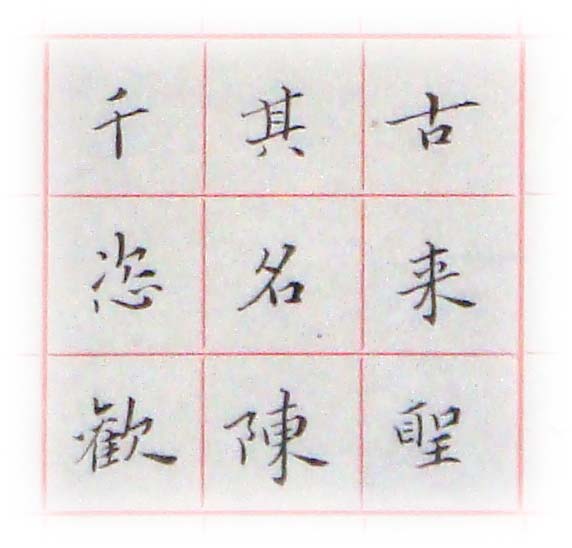 古来聖
其名陳
千恣歡